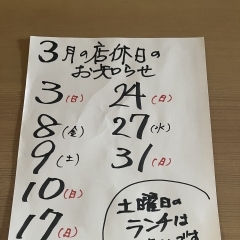 3月の店休日の
お知らせ
3(日)
8(金)
9(土)
10(日)
17(日)
24(日)
27(水)
31(日)
土曜日の
ランチは
です